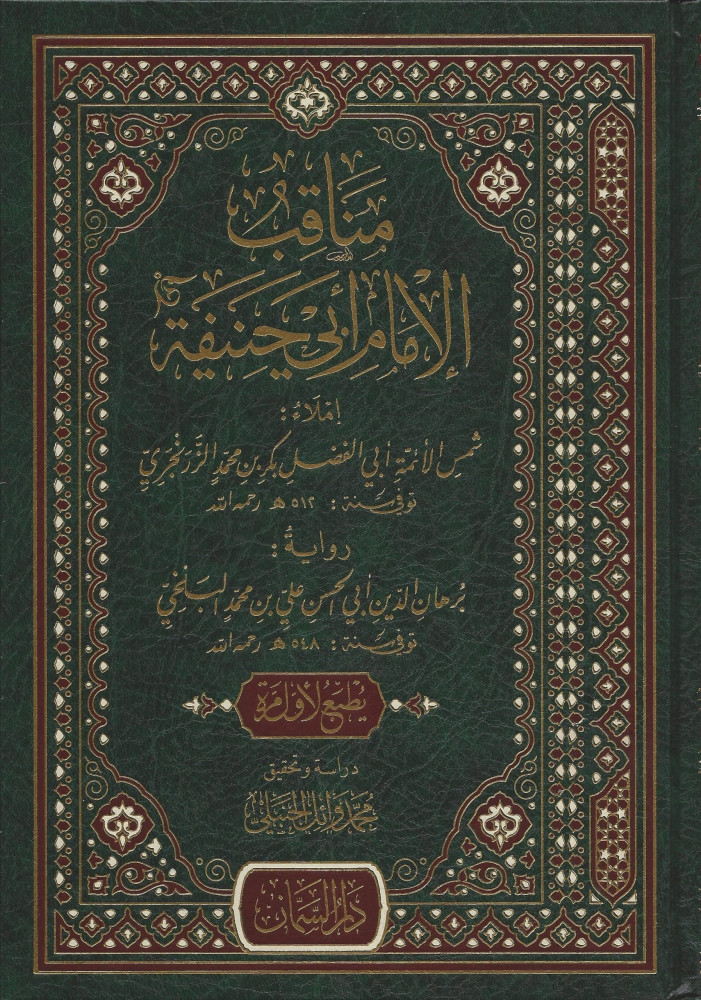 مَنَاقِبُ
الإِمَامِ أَبِي حَنِيفَةَ
إملاءُ:
شمسِ الأئمّةِ أبي الفضلِ بكرِ بنِ محمّدٍ الزَّرَنْجَرِيِّ
توفي سنة: ٥١٢ هـ رحمه الله
روايةُ:
بُرهانِ الدّينِ أبي الحسنِ عليِّ بنِ محمّدٍ البَلْخِيِّ
توفي سنة: ٥٤٨ هـ رحمه الله
يُطبع لأول مرة
دراسة وتحقيق
محمّد وائل الحنبلي
دار السمان